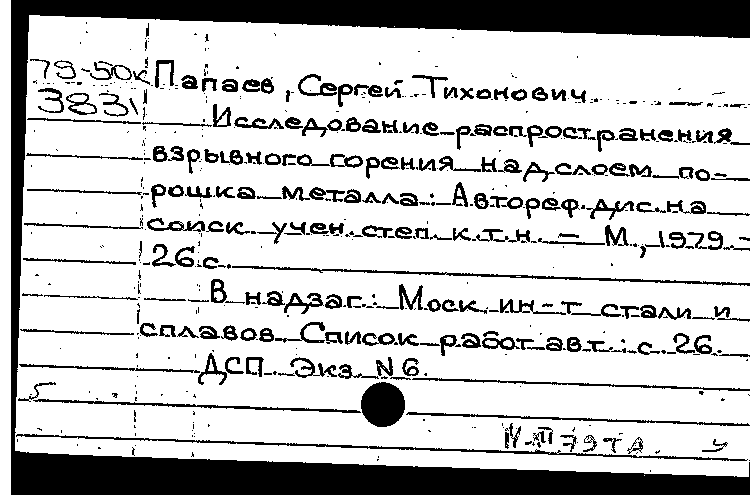 79-50к Папаев, Сергей Тихонович.
3831 Исследование распространения
взрывного горения над слоем по-
рошка металла: Автореф. дис. на
соиск. учен. степ. к.т.н. – М., 1979. –
26 с.
В надзаг.: Моск. ин-т стали и
сплавов. Список работ авт.: с. 26.
ДСП. Экз. N 6.
5